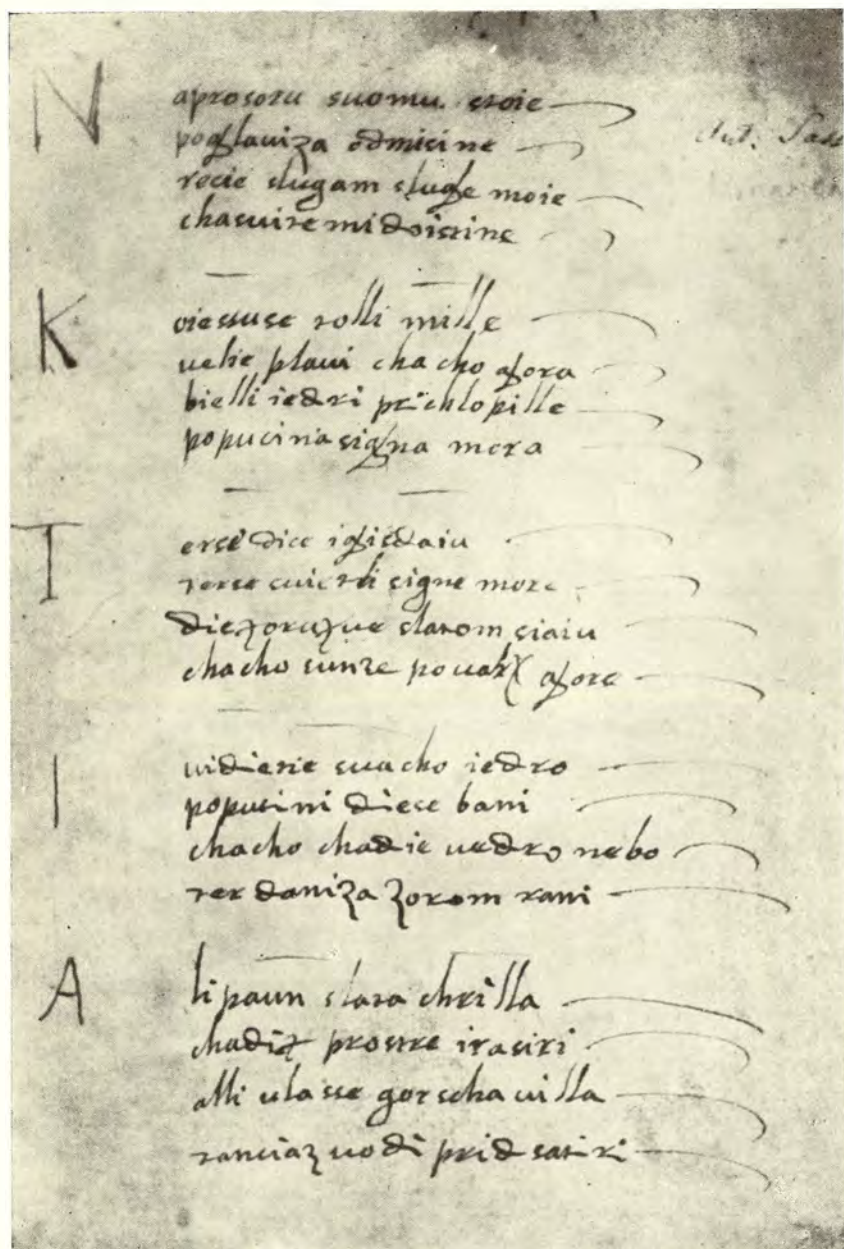 N aprosoru suomu stoie
poglauiza odmisine
rocie slugam sluge moie
chasuite mi doistine
K oiessuse rolli mille
uelie plaui chacho gora
bielli iedri prichlopille
popucina signa mora
T erse dice igisdaiu
terse cuierdi signe more
die zoruzue slatom siaiu
chacho sunze pouarx gore
I uidiesie suacho iedro
popucini diese bani
chacho chadie uedro nebo
ter daniza zorom rani
A li paun slata chrilla
chadie prostre irasiri
alli ulasse gorscha uilla
tanciaz uodi prid satiri